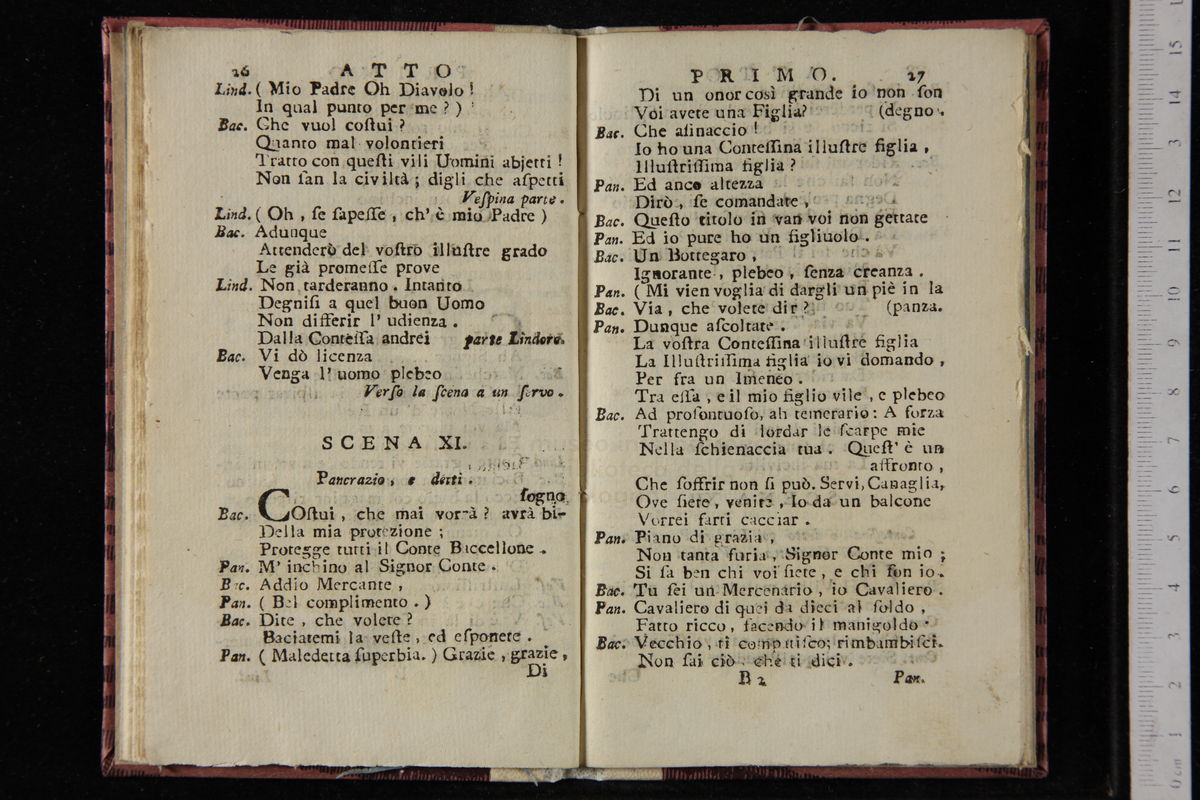 26 ATTO
Lind. ( Mio Padre Oh Diavolo !
In qual punto per me ? )
Bac. Che vuol coſtui ?
Quanto mal volontieri
Tratto con queſti vili Uomini abjetti !
Non ſan la civiltà ; digli che aſpetti
Veſpina parte .
Lind. ( Oh , ſe ſapeſſe , ch' è mio Padre )
Bac. Adunque
Attenderò del voſtro illuſtre grado
Le già promeſſe prove
Lind. Non tarderanno . Intanto
Degniſi a quel buon Uomo
Non differir l' udienza .
Dalla Conteſſa andrei parte Lindoro.
Bac. Vi dò licenza
Venga l' uomo plebeo
Verſo la ſcena a un ſervo .
SCENA XI.
Pancrazio, e detti .
ſogno
Bac. COſtui , che mai vorrà ? avrà bi-
Della mia protezione ;
Protegge tutti il Conte Baccellone .
Pan. M' inchino al Signor Conte .
Bac. Addio Mercante ,
Pan. ( Bel complimento . )
Bac. Dite , che volete ?
Baciatemi la veſte , ed eſponete .
Pan. ( Maledetta ſuperbia. ) Grazie , grazie ,
Di
PRIMO. 27
Di un onor così grande io non ſon
Voi avete una Figlia? (degno .
Bac. Che aſinaccio !
Io ho una Conteſſina illuſtre figlia ,
Illuſtriſſima figlia ?
Pan. Ed anco altezza
Dirò , ſe comandate ,
Bac. Queſto titolo in van voi non gettate
Pan. Ed io pure ho un figliuolo .
Bac. Un Bottegaro ,
Ignorante , plebeo , ſenza creanza .
Pan. ( Mi vien voglia di dargli un piè in la
Bac. Via , che volete dir ? (panza.
Pan. Dunque aſcoltate .
La voſtra Conteſſina illuſtre figlia
La Illuſtriſſima figlia io vi domando ,
Per fra un Imeneo .
Tra eſſa , e il mio figlio vile , e plebeo
Bac. Ad proſontuoſo, ah temerario : A forza
Trattengo di lordar le ſcarpe mie
Nella ſchienaccia tua . Queſt' è un
affronto ,
Che ſoffrir non ſi può. Servi, Canaglia,
Ove ſiete , venite , Io da un balcone
Vorrei farti cacciar .
Pan. Piano di grazia ,
Non tanta furia , Signor Conte mio ;
Si ſa ben chi voi ſiete , e chi ſon io .
Bac. Tu ſei un Mercenario , io Cavaliero .
Pan. Cavaliero di quei da dieci al ſoldo ,
Fatto ricco , facendo il manigoldo .
Bac. Vecchio , ti compatiſco; rimbambiſci.
Non ſai ciò , che ti dici .
B 2 Pan.